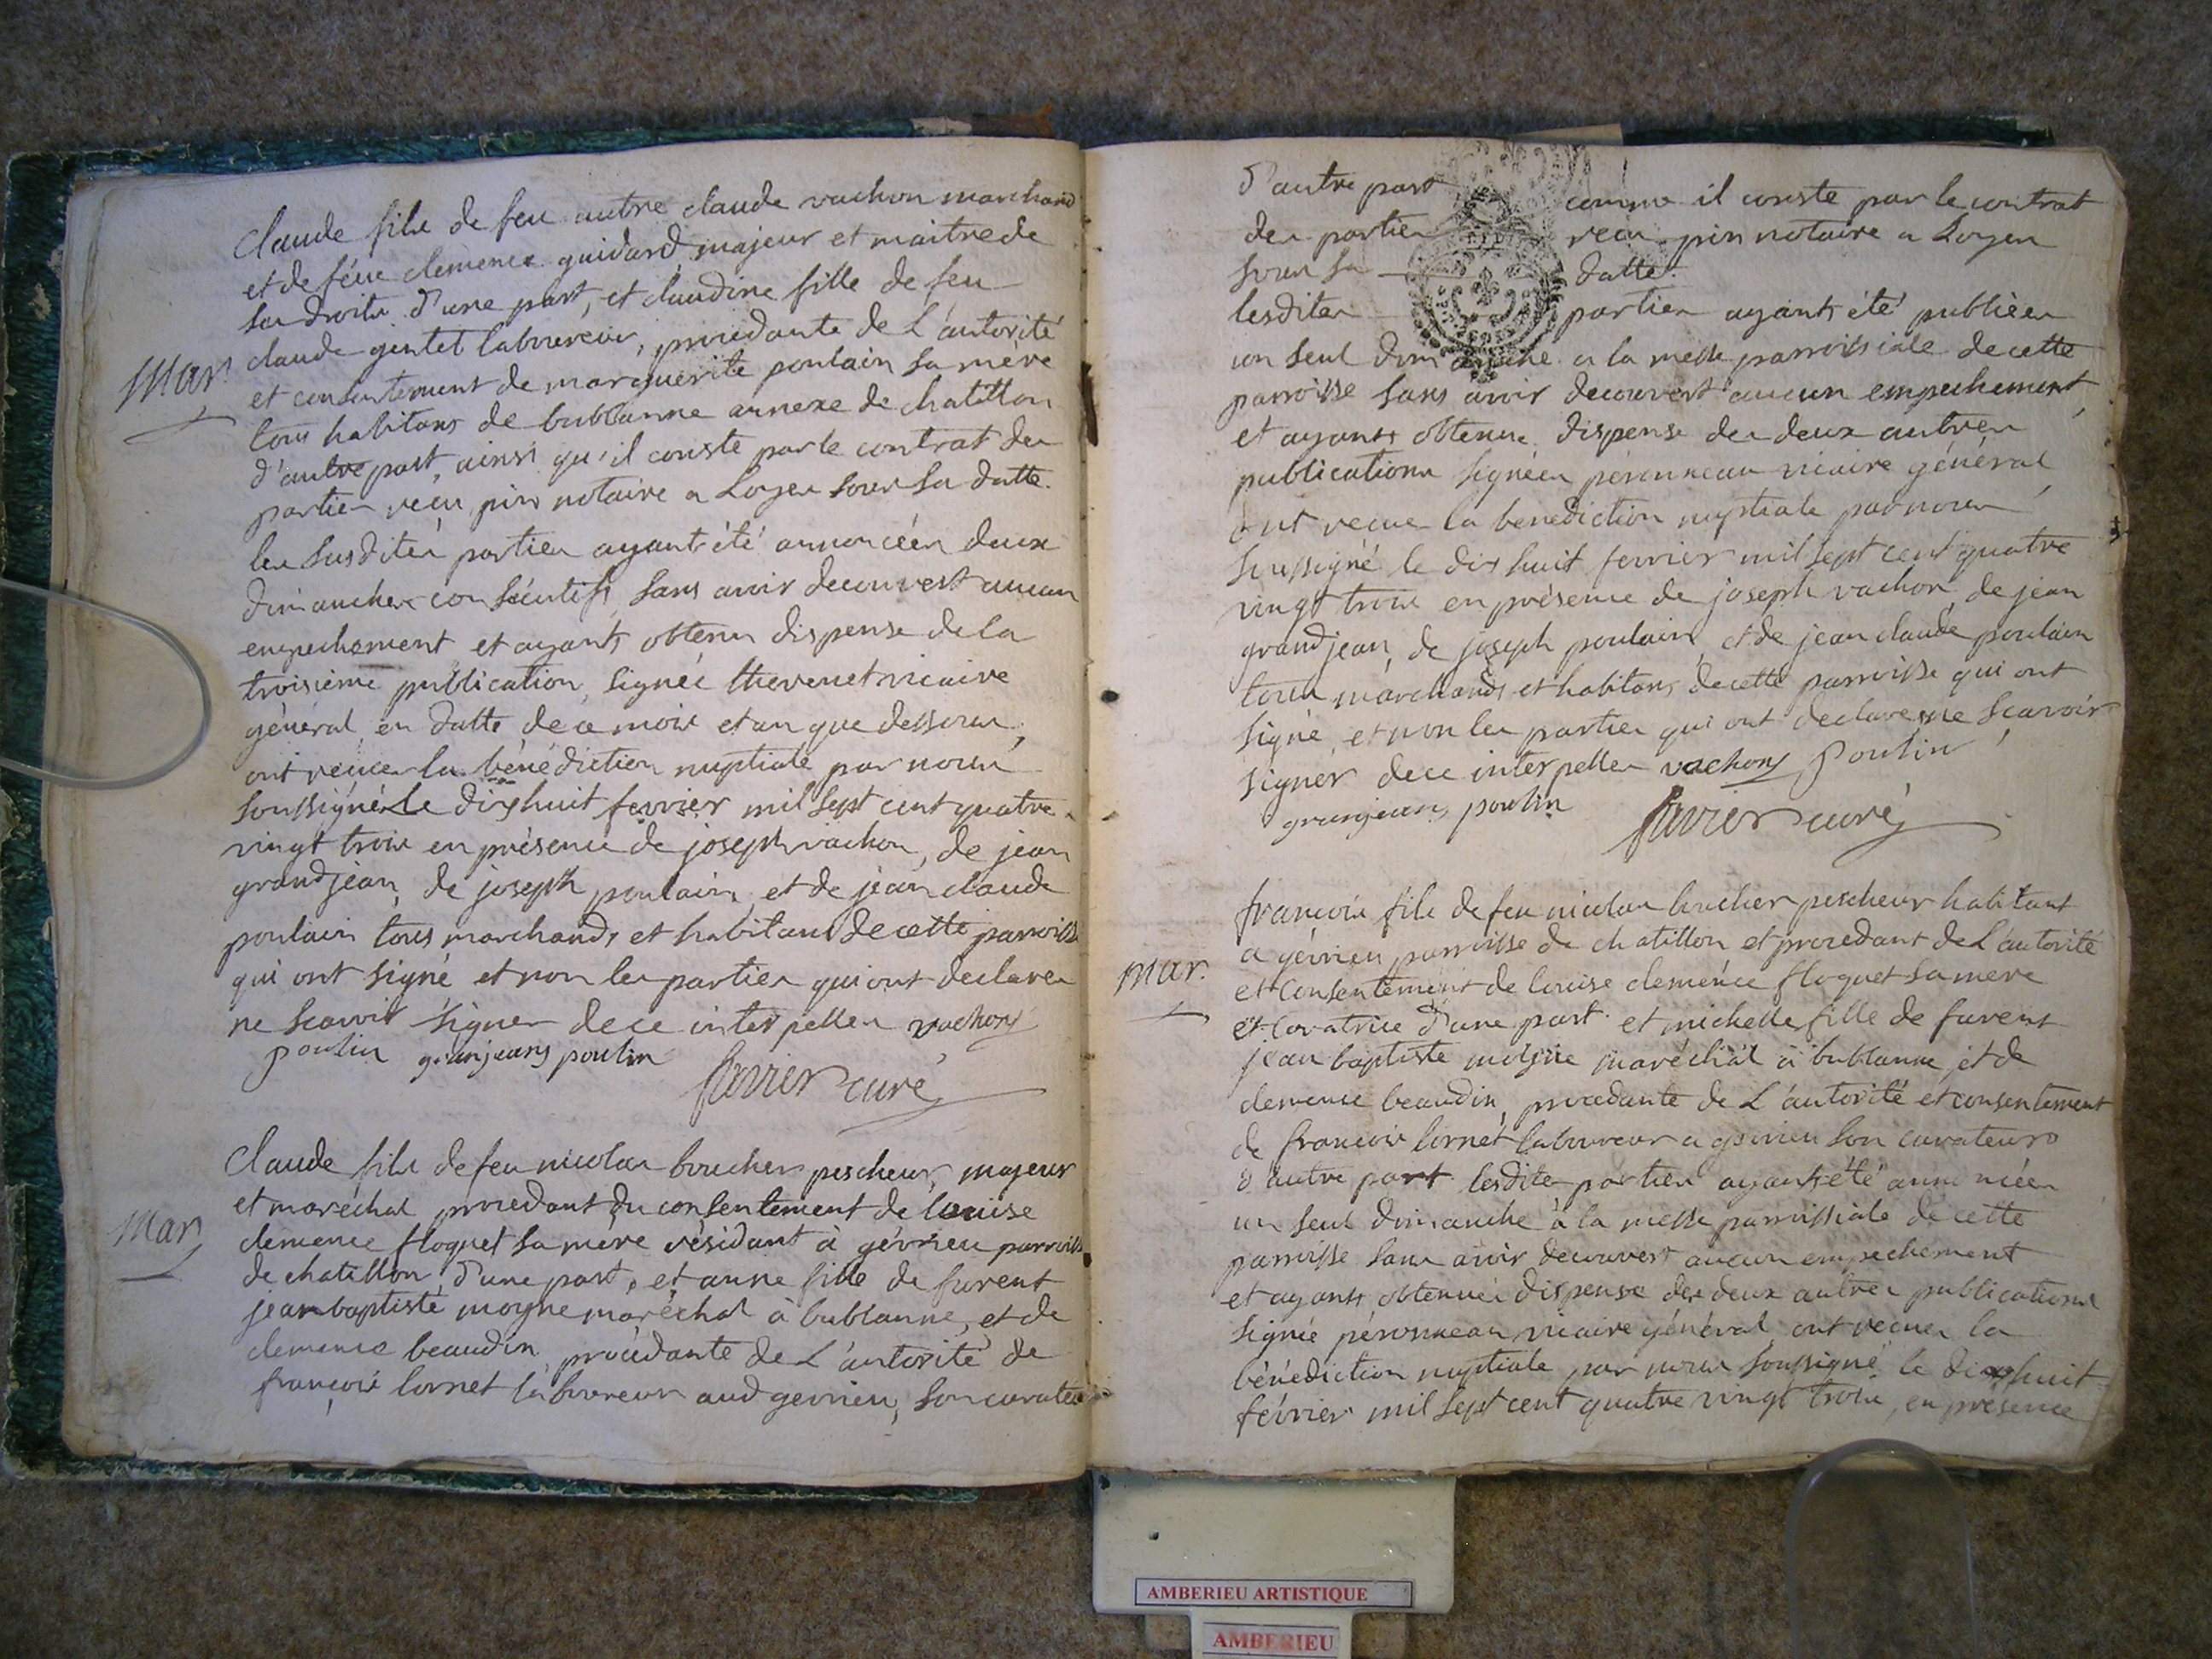 claude fils de feu autre claude vachon marchand
et de féue clemence guidard majeur et maitre de
ses droits d'une part, et claudine fille de feu
Mar.
claude gentet laboureur, procedante de l'autorité
et consentement de marguerite poulain sa mère
tous habitans de bublanne annexe de chatillon
d'autre part, ainsi qu'il conste par le contrat des
parties recu pin notaire a Loyes sous sa datte.
les susdites parties ayant été annoncées deux
dimanches consécutifs sans avoir decouvert aucun
empechement et ayants obtenu dispense de la
troisieme publication, signée thevenet vicaire
général en datte de ce mois et an que dessous,
ont recues la bénédiction nuptiale par nous
soussigné Le dixhuit fevrier mil sept cent quatre
vingt trois en présence de joseph vachon, de jean
grandjean, de joseph poulain, et de jean claude
poulain tous marchands et habitans de cette parroisse
qui ont signé et non les parties qui ont declarés
ne scavoir signer de ce interpellés vachon
poulin granjean poulin
favier curé
claude fils de feu nicolas boucher pescheur, majeur
et maréchal procedant du consentement de louise
Mar
clemence floquet sa mere résidant à gévrieu parroisse
de chatillon d'une part, et anne fille de furent
jean baptiste moyne maréchal à bublanne, et de
clemence beaudin, procédante de L'autorité de
francois lornet laboureur aud gevrieu, son curateur
d'autre part comme il conste par le contrat
des parties recu pin notaire a Loyes
sous sa datte.
lesdites parties ayants été publiées
un seul dimanche a la messe parroissiale de cette
parroisse sans avoir decouvert aucun empechement,
et ayants obtenue dispense des deux autres
publications signées péronneau vicaire général
ont recues la benediction nuptiale par nous
soussigné le dix huit fevrier mil sept cent quatre
vingt trois en présence de joseph vachon, de jean
grandjean, de joseph poulain, et de jean claude poulain
tous marchands et habitans de cette parroisse qui ont
signé, et non les parties qui ont declaré ne scavoir
signer de ce interpellés vachon poulin
granjean poulin favier curé
francois fils de feu nicolas boucher pescheur habitant
a gévrieu parroisse de chatillon et procedant de L'autorité
Mar.
et consentement de louise clemence floquet sa mere
et curatrice d'une part et michelle fille de furent
jean baptiste moyne maréchal à bublanne, et de
clemence beaudin, procedante de L'autorité et consentement
de francois lornet laboureur a gevrieu son curateur
d'autre part lesdites parties ayants été annoncées
un seul dimanche à la messe parroissiale de cette
parroisse sans avoir decouvert aucun empechement
et ayants obtenues dispense des deux autres publications
signée péronneau vicaire général ont recues la
bénédiction nuptiale par nous soussigné le dixhuit
février mil sept cent quatre vingt trois, en présence
AMBERIEU ARTISTIQUE
AMBERIEU